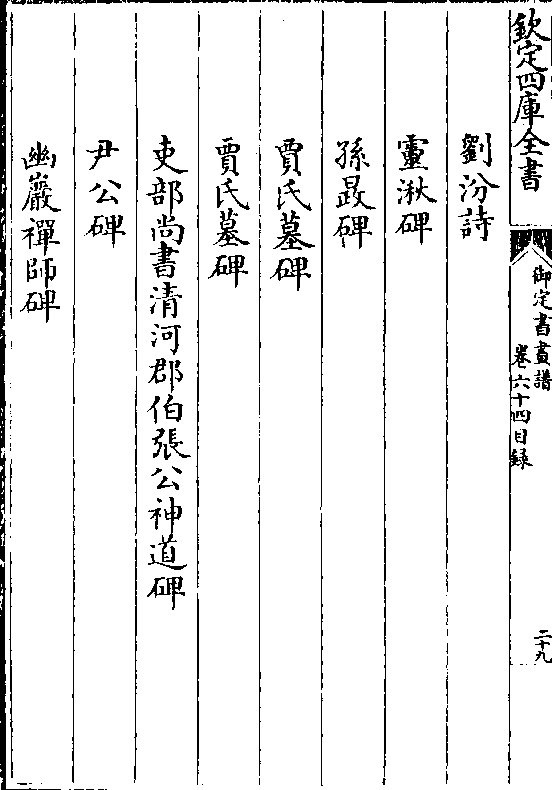 欽定四庫全書
御定書畫譜
卷六十四目錄
二十九
劉汾詩
靈湫碑
孫晸碑
賈氏墓碑
賈氏墓碑
吏部尚書清河郡伯張公神道碑
尹公碑
幽巖禪師碑